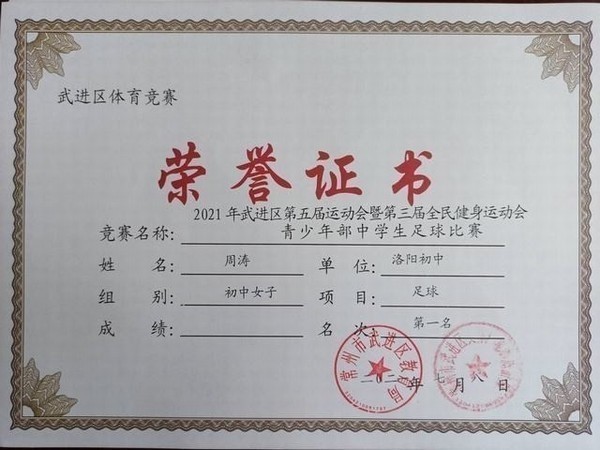 武进区体育竞赛
荣誉证书
2021年武进区第五届运动会暨第三届全民健身运动会
竞赛名称: 青少年部中学生足球比赛
姓 名: 周涛 单 位: 洛阳初中
组 别: 初中女子 项 目: 足球
成 绩: 名 次: 第一名
常州市武进区教育局
二〇二一年七月八日